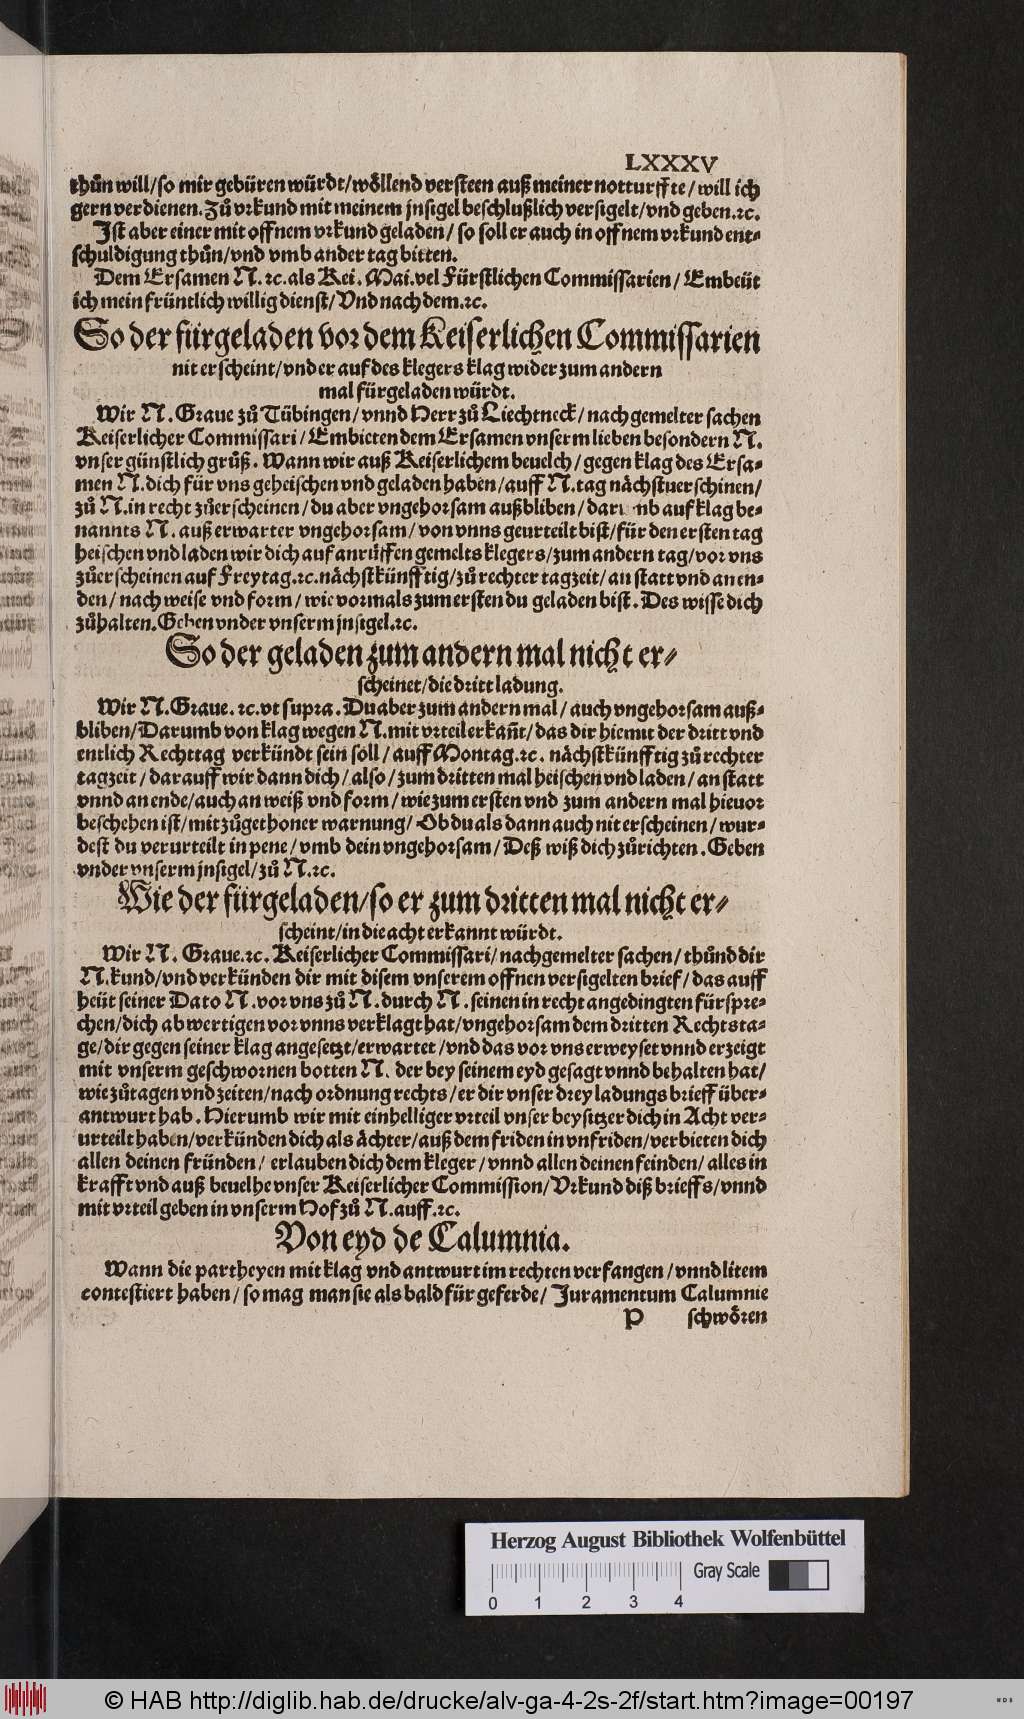 LXXXV
thůn will/so mir gebüren würdt/wöllend versteen auß meiner notturffte/will ich
gern verdienen. Zů vrkund mit meinem jnsigel beschlußlich versigelt/vnd geben.ꝛc.
Ist aber einer mit offnem vrkund geladen/ so soll er auch in offnem vrkund ent⸗
schuldigung thůn/vnd vmb ander tag bitten.
Dem Ersamen N.ꝛc. als Kei. Mai. vel Fürstlichen Commissarien/ Embeüt
ich mein früntlich willig dienst/Vnd nach dem.ꝛc.
So der fürgeladen vor dem Keiserlichen Commissarien
nit erscheint/vnd er auf des klegers klag wider zum andern
mal fürgeladen würdt.
Wir N. Graue zů Tübingen/ vnnd Herr zů Liechtneck/ nachgemelter sachen
Keiserlicher Commissari/ Embieten dem Ersamen vnserm lieben besondern N.
vnser günstlich grůß. Wann wir auß Keiserlichem beuelch/ gegen klag des Ersa⸗
men N. dich für vns geheischen vnd geladen haben/auff N. tag nächstuerschinen/
zů N. in recht zůerscheinen/ du aber vngehorsam außbliben/ auf klag be⸗
nannts N. auß erwarter vngehorsam/ von vnns geurteilt bist/für den ersten tag
heischen vnd laden wir dich auf anrüffen gemelts klegers/zum andern tag/vor vns
zůerscheinen auf Freytag.ꝛc. nächstkünfftig/zů rechter tagzeit/ an statt vnd an en⸗
den/ nach weise vnd form/ wie vormals zum ersten du geladen bist. Des wisse dich
zůhalten. Geben vnder vnserm jnsigel.ꝛc.
So der geladen zum andern mal nicht er⸗
scheinet/die dritt ladung.
Wir N. Graue.ꝛc. vt supra. Du aber zum andern mal/ auch vngehorsam auß⸗
bliben/Darumb von klag wegen N. mit vrteil erkañt/das dir hiemit der dritt vnd
entlich Rechttag verkündt sein soll/ auff Montag.ꝛc. nächstkünfftig zů rechter
tagzeit/ darauff wir dann dich/ also/ zum dritten mal heischen vnd laden/ an statt
vnnd an ende/auch an weiß vnd form/ wie zum ersten vnd zum andern mal hieuor
beschehen ist/ mit zůgethoner warnung/ Ob du als dann auch nit erscheinen/ wur⸗
dest du verurteilt in pene/ vmb dein vngehorsam/ Deß wiß dich zůrichten. Geben
vnder vnserm jnsigel/ zů N.ꝛc.
Wie der fürgeladen/so er zum dritten mal nicht er⸗
scheint/in die acht erkannt würdt.
Wir N. Graue.ꝛc. Keiserlicher Commissari/ nachgemelter sachen/ thůnd dir
N. kund/vnd verkünden dir mit disem vnserem offnen versigelten brief/ das auff
heüt seiner Dato N. vor vns zů N. durch N. seinen in recht angedingten fürspre⸗
chen/dich abwertigen vor vnns verklagt hat/vngehorsam dem dritten Rechtsta⸗
ge/dir gegen seiner klag angesetzt/erwartet/vnd das vor vns erweyset vnnd erzeigt
mit vnserm geschwornen botten N. der bey seinem eyd gesagt vnnd behalten hat/
wie zůtagen vnd zeiten/nach ordnung rechts/ er dir vnser drey ladungs brieff über⸗
antwurt hab. Hierumb wir mit einhelliger vrteil vnser beysitzer dich in Acht ver⸗
urteilt haben/verkünden dich als ächter/auß dem friden in vnfriden/verbieten dich
allen deinen fründen/ erlauben dich dem kleger/vnnd allen deinen feinden/ alles in
krafft vnd auß beuelhe vnser Keiserlicher Commission/ Vrkund diß brieffs/vnnd
mit vrteil geben in vnserm Hof zů N. auff.ꝛc.
Von eyd de Calumnia.
Wann die partheyen mit klag vnd antwurt im rechten verfangen/vnnd litem
contestiert haben/ so mag man sie als bald für geferde/ Juramentum Calumnie
P schwören
Herzog August Bibliothek Wolfenbüttel
Gray Scale
0 1 2 3 4
© HAB http://diglib.hab.de/drucke/alv-ga-4-2s-2f/start.htm?image=00197